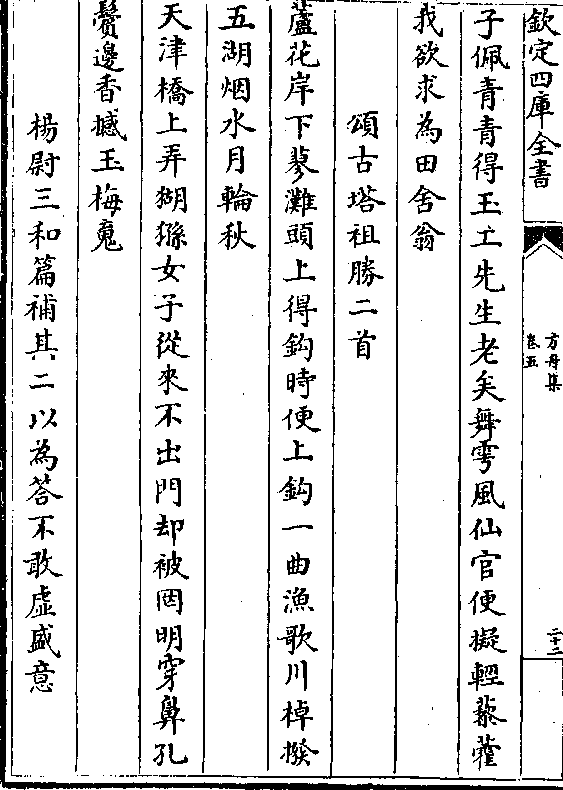 欽定四庫全書
方舟集
卷五
二十二
子佩青青得玉工先生老矣舞雩風仙官便擬輕藜藿
我欲求為田舍翁
頌古塔祖勝二首
蘆花岸下蓼灘頭上得鈎時便上鈎一曲漁歌川棹撥
五湖烟水月輪秋
天津橋上弄猢猻女子從來不出門却被罔明穿鼻孔
鬢邊香撼玉梅䰟
楊尉三和篇補其二以為答不敢虛盛意